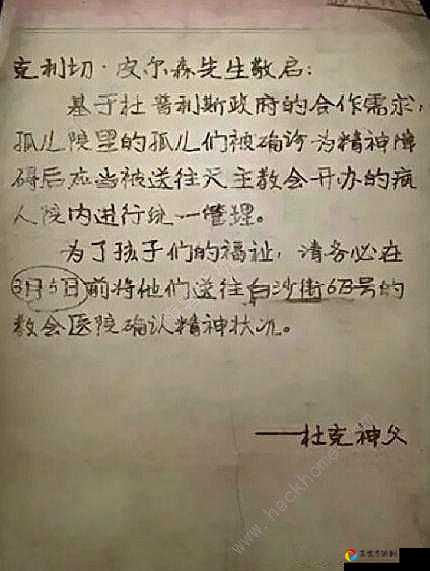 克利切·皮尔森先生敬启：
基于杜普利斯政府的合作需求，
孤儿院里的孤儿们被确诊为精神障
碍后应当被送往天主教会开办的疯
人院内进行统一管理。
为了孩子们的福祉，请务必在
3月5日前将他们送往白沙街63号的
教会医院确认精神状况。
——杜克神父
www.hackhome.com